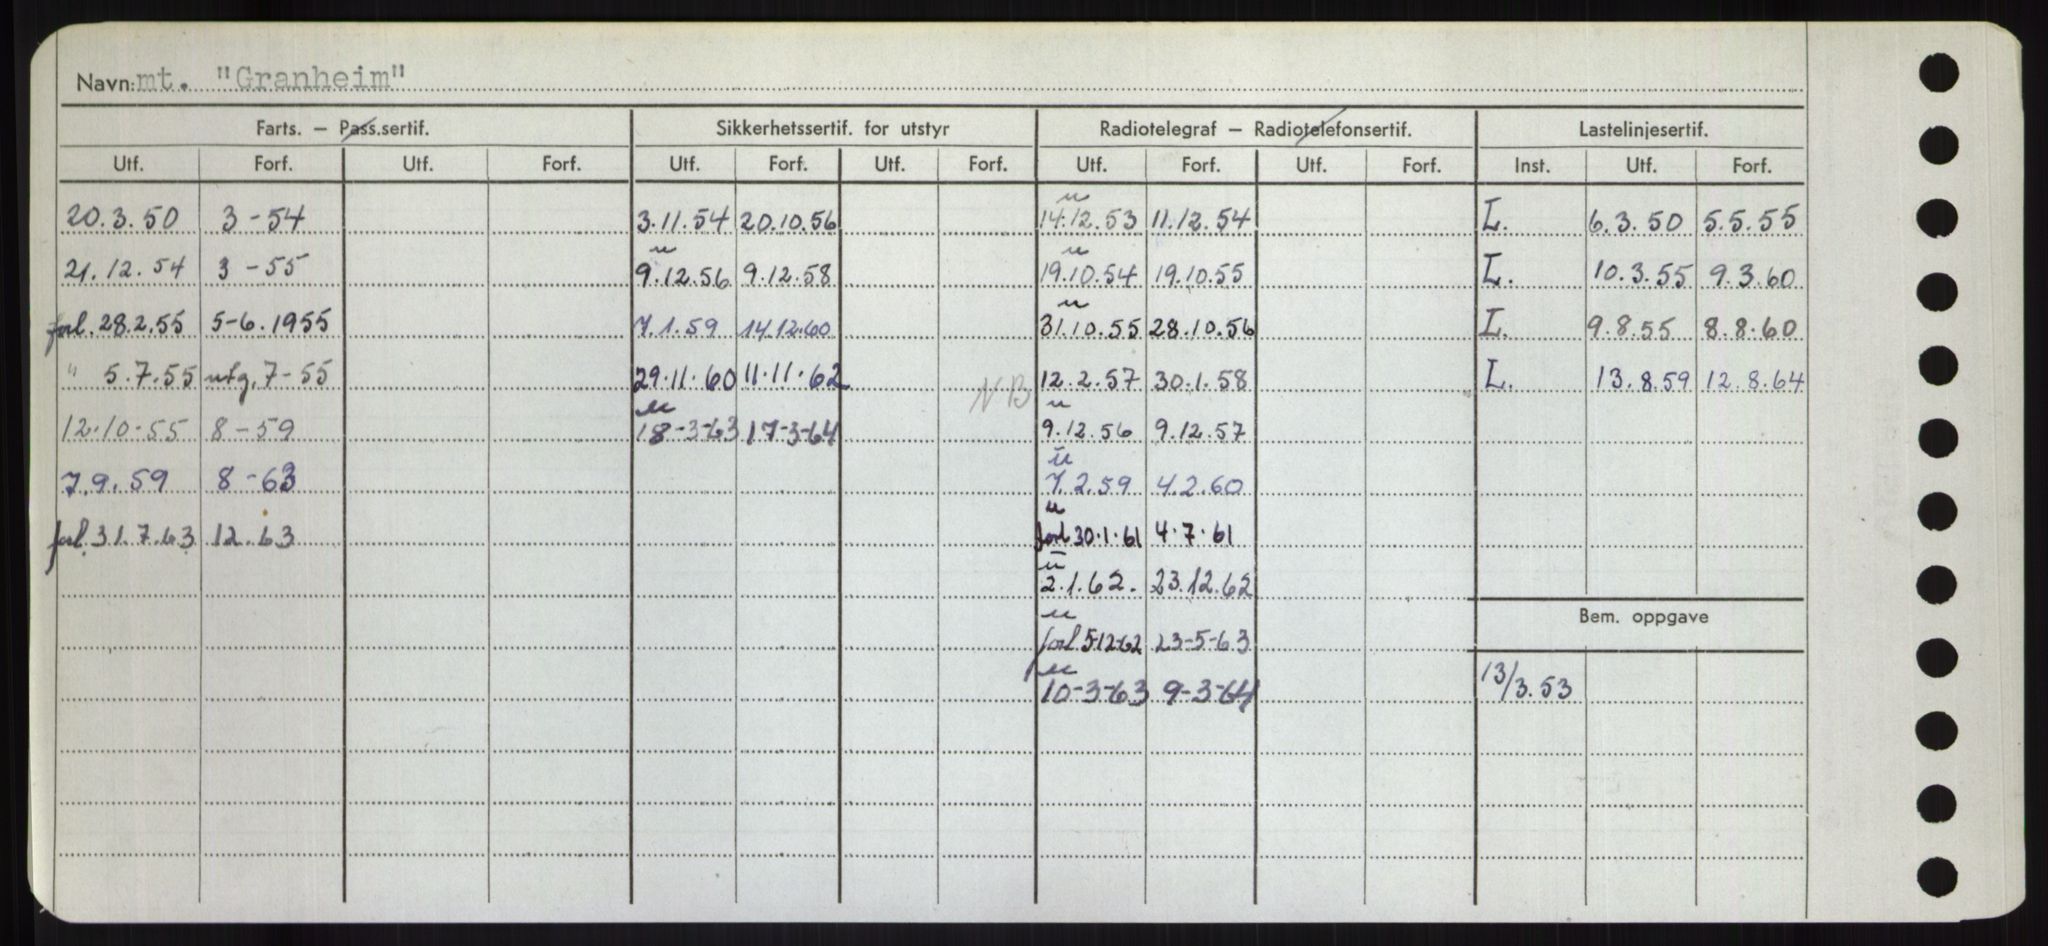 Navn: mt. "Granheim"
Farts. – Pass.sertif. Sikkerhetssertif. for utstyr Radiotelegraf – Radiotelefonsertif. Lastelinjesertif.
Utf. Forf. Utf. Forf. Utf. Forf. Utf. Forf. Utf. Forf. Utf. Forf. Inst. Utf. Forf.
u
20.3.50 3-54 3.11.54 20.10.56 14.12.53 11.12.54 L. 6.3.50 5.5.55
u u
21.12.54 3-55 9.12.56 9.12.58 19.10.54 19.10.55 L. 10.3.55 9.3.60
u
forl. 28.2.55 5-6.1955 7.1.59 14.12.60 31.10.55 28.10.56 L. 9.8.55 8.8.60
" 5.7.55 utg. 7-55 29.11.60 11.11.62 NB 12.2.57 30.1.58 L. 13.8.59 12.8.64
u u
12.10.55 8-59 18-3-63 17-3-64 9.12.56 9.12.57
u
7.9.59 8-63 7.2.59 4.2.60
u
forl. 31.7.63 12.63 forl 30.1.61 4.7.61
u
2.1.62. 23.12.62
Bem. oppgave
u
forl 5-12-62 23-5-63
u
10-3-63 9-3-64 13/3.53